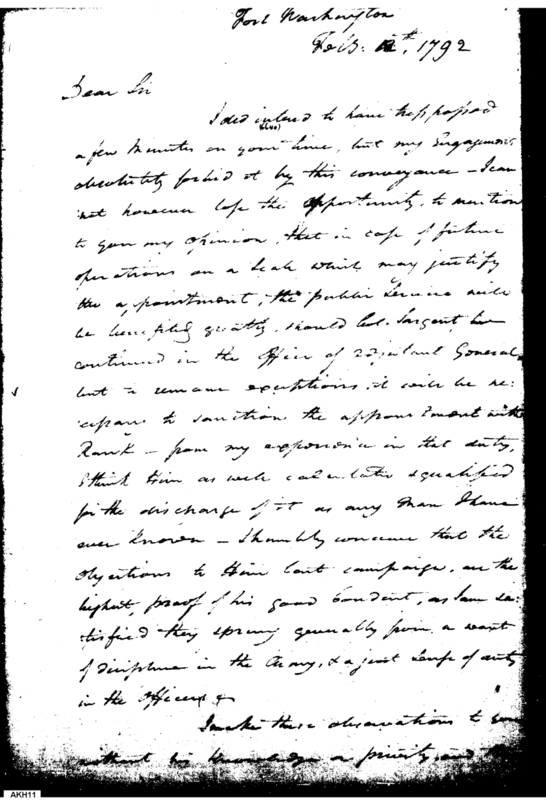 Fort Washington
Feb. 12th, 1792
Dear Sir
I did intend to have tresspassed
(two)
a few Minutes on your time, but my Engagements
absolutely forbid it by this conveyance – I can
not however lose the opportunity, to mention
to you my opinion, that in case of future
operations on a Scale which may justify
the appointment, the public Service will
be benefited greatly, should Col. Sargent be
continued in the Office of Adjutant General
but to remove exceptions, it will be ne:
cessary to sanction the appointment with
Rank – from my experience in that duty,
I think Him as well calculated & qualified
for the discharge of it as any Man I have
ever known – I humbly conceive that the
Objections to Him last campaign, are the
highest proof of his good Conduct, as I am sa:
tisfied they sprung generally from a want
of discipline in the Army, & a just Sense of duty
in the Officers
I make these observations to you
without his knowledge or privity, and
AKH11